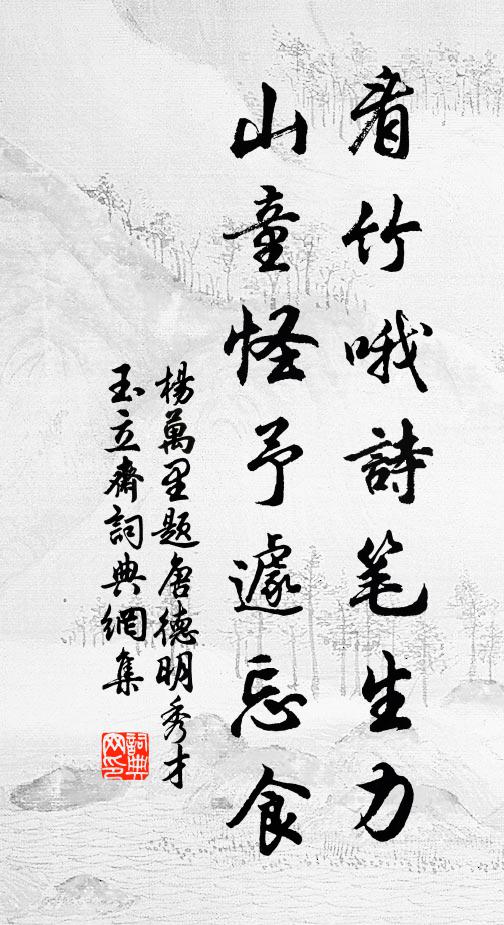 看竹哦詩笔生力
山童怪予遽忘食
楊萬里题唐德明秀才
玉立齋詞典網集
詞典網印